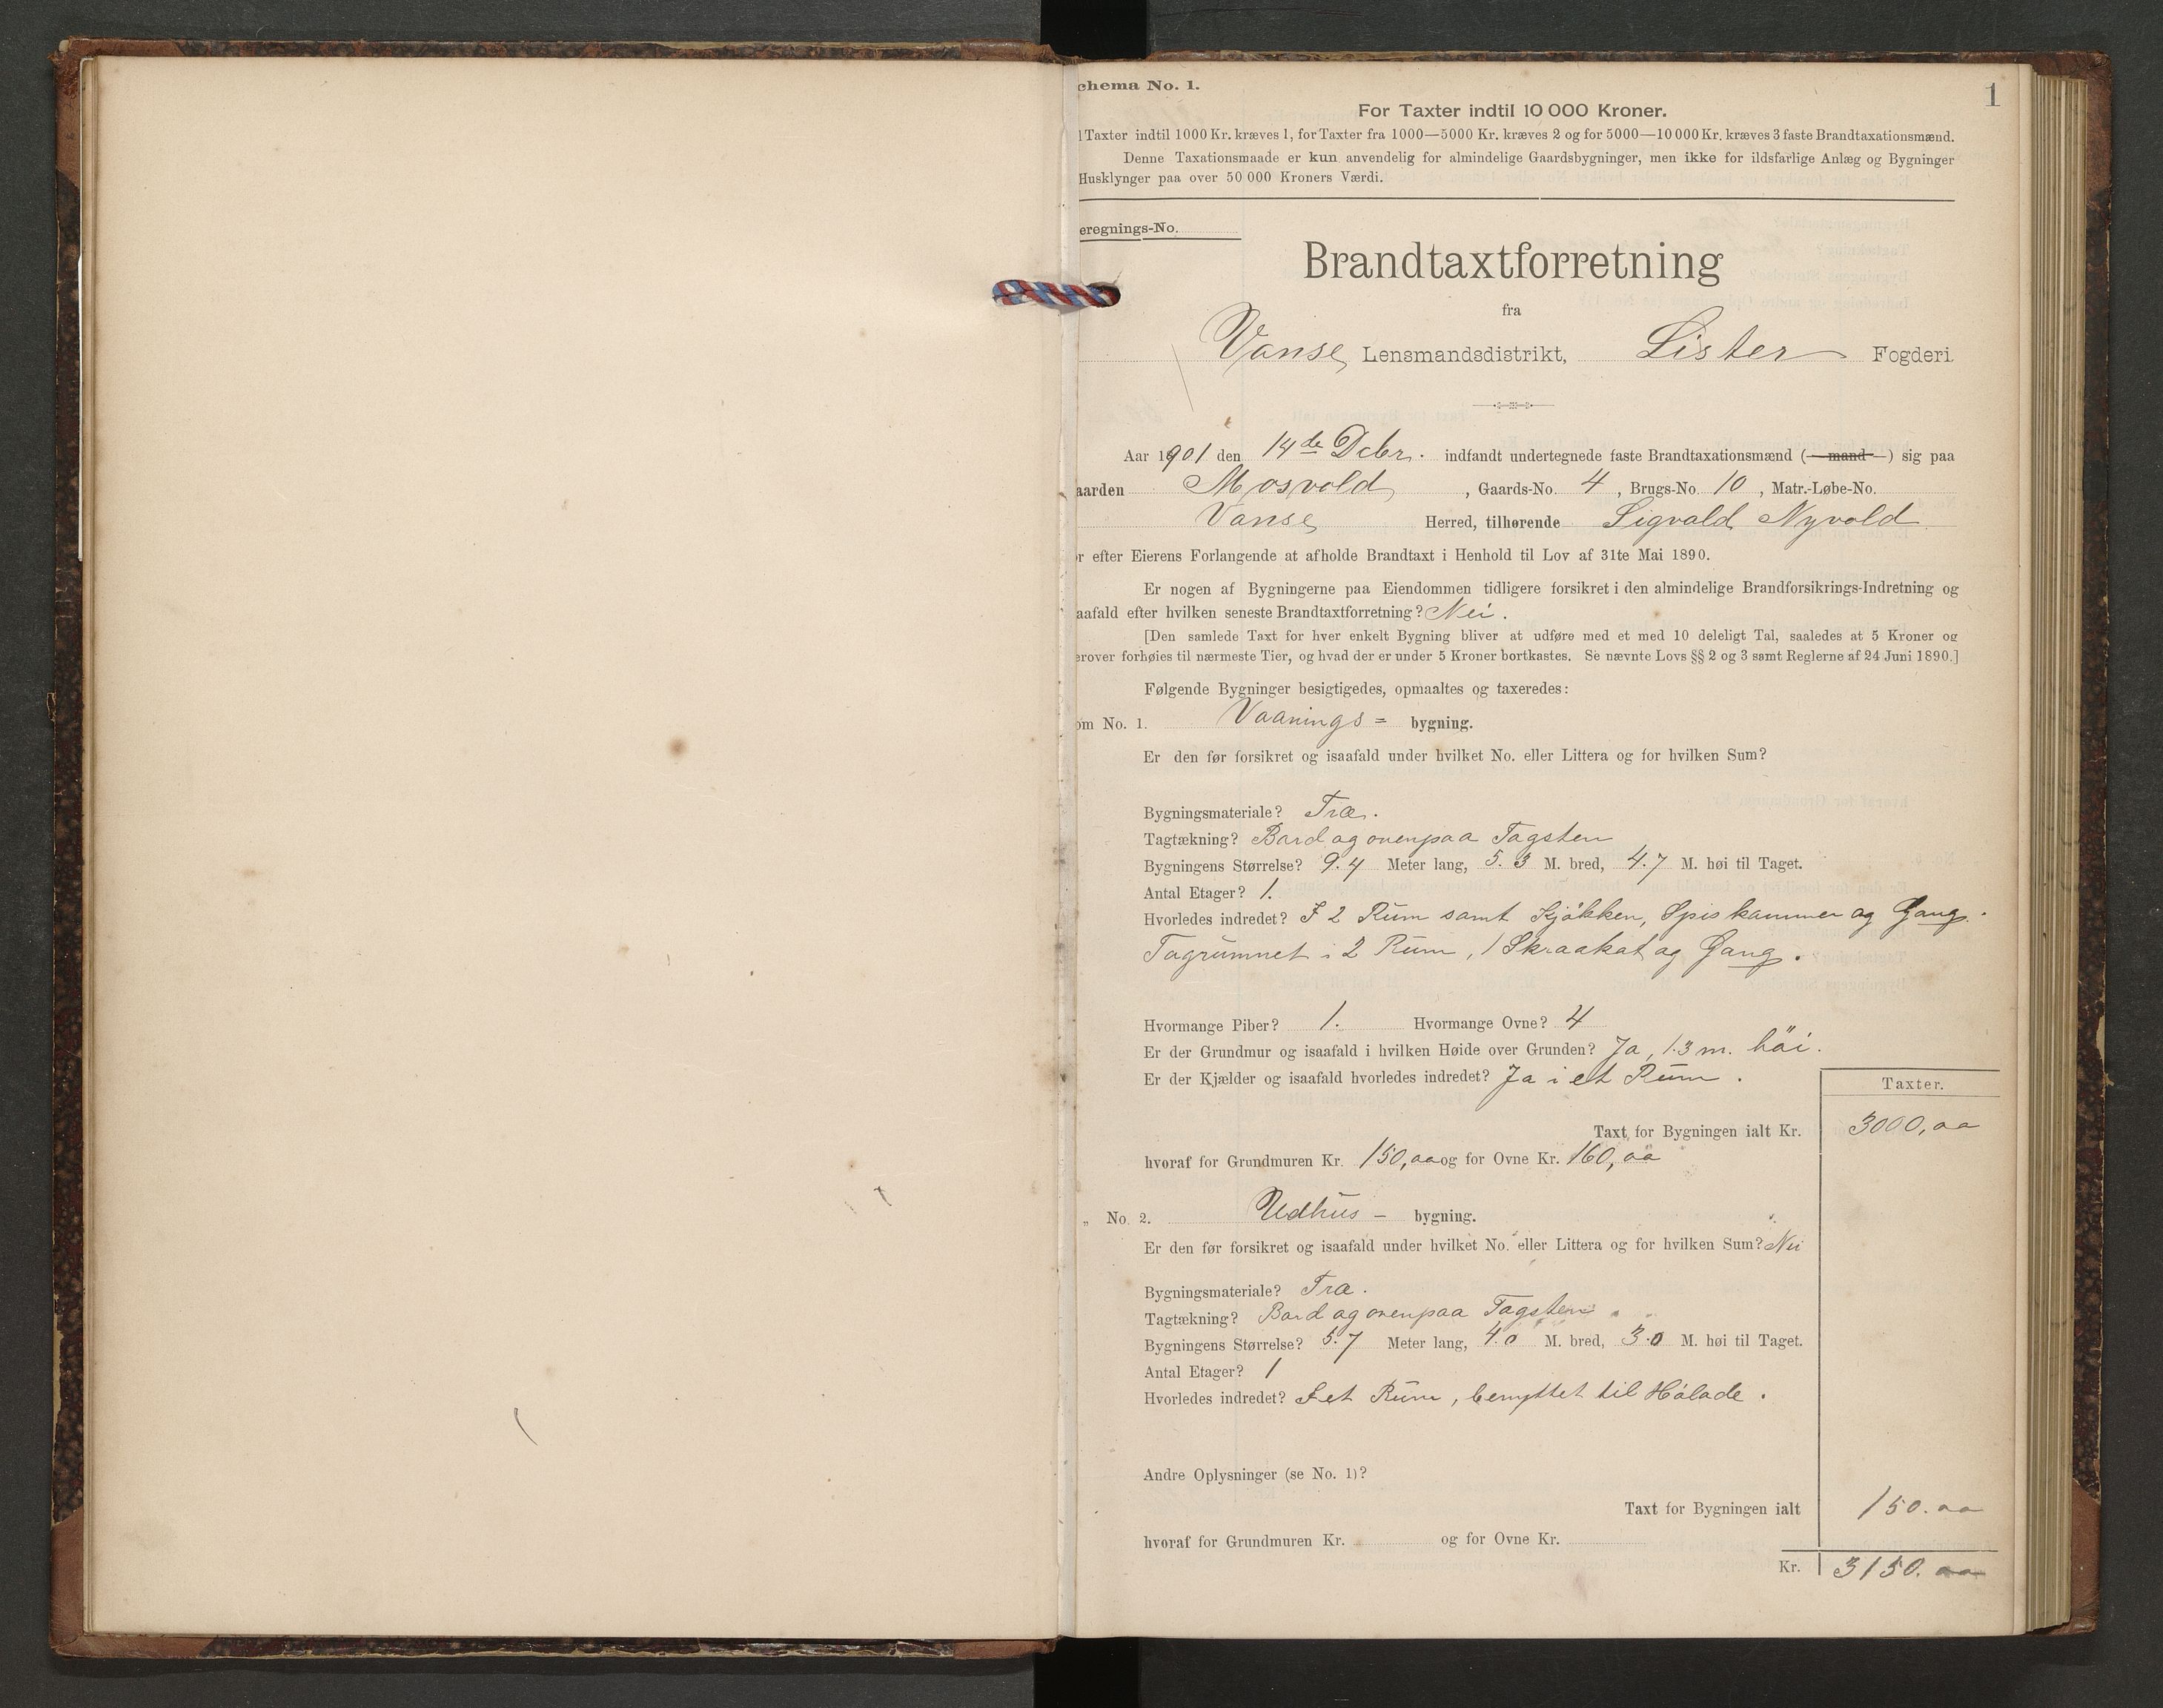 chema No. 1.
1
For Taxter indtil 10 000 Kroner.
l Taxter indtil 1000 Kr. kræves 1, for Taxter fra 1000—5000 Kr. kræves 2 og for 5000—10 000 Kr. kræves 3 faste Brandtaxationsmænd.
Denne Taxationsmaade er kun anvendelig for almindelige Gaardsbygninger, men ikke for ildsfarlige Anlæg og Bygninger
Husklynger paa over 50 000 Kroners Værdi.
eregnings-No.
Brandtaxtforretning
fra
Vanse Lensmandsdistrikt, Lister Fogderi
Aar 1901 den 14de Debr. indfandt undertegnede faste Brandtaxationsmænd (—mand—) sig paa
aarden Mosvold, Gaards-No. 4, Brugs-No. 10, Matr.-Løbe-No.
Vanse Herred, tilhørende Sigvald Nyvold
r efter Eierens Forlangende at afholde Brandtaxt i Henhold til Lov af 31te Mai 1890.
Er nogen af Bygningerne paa Eiendommen tidligere forsikret i den almindelige Brandforsikrings-Indretning og
aafald efter hvilken seneste Brandtaxtforretning? Nei.
[Den samlede Taxt for hver enkelt Bygning bliver at udføre med et med 10 deleligt Tal, saaledes at 5 Kroner og
erover forhøies til nærmeste Tier, og hvad der er under 5 Kroner bortkastes. Se nævnte Lovs §§ 2 og 3 samt Reglerne af 24 Juni 1890.]
Følgende Bygninger besigtigedes, opmaaltes og taxeredes:
om No. 1. Vaanings= bygning.
Er den før forsikret og isaafald under hvilket No. eller Littera og for hvilken Sum?
Bygningsmateriale? Træ.
Tagtækning? Bord og ovenpaa Tagsten
Bygningens Størrelse? 9.4 Meter lang, 5.3 M. bred, 4.7 M. høi til Taget.
Antal Etager? 1.
Hvorledes indredet? I 2 Rum samt Kjökken, Spiskammer og Gang.
Tagrummet i 2 Rum, 1 Skraakot og Gang.
Hvormange Piber? 1. Hvormange Ovne? 4
Er der Grundmur og isaafald i hvilken Høide over Grunden? Ja, 1.3 m. höi.
Er der Kjælder og isaafald hvorledes indredet? Ja i et Rum.
Taxter.
Taxt for Bygningen ialt Kr. 3000,00
hvoraf for Grundmuren Kr. 150,00 og for Ovne Kr. 160,00
„ No. 2. Udhus- bygning.
Er den før forsikret og isaafald under hvilket No. eller Littera og for hvilken Sum? Nei
Bygningsmateriale? Træ.
Tagtækning? Bord og ovenpaa Tagsten.
Bygningens Størrelse? 5.7 Meter lang, 4.0 M. bred, 3.0 M. høi til Taget.
Antal Etager? 1
Hvorledes indredet? I et Rum, benyttet til Hölade.
Andre Oplysninger (se No. 1)?
Taxt for Bygningen ialt 150.00
hvoraf for Grundmuren Kr. og for Ovne Kr.
Kr. 3150.00